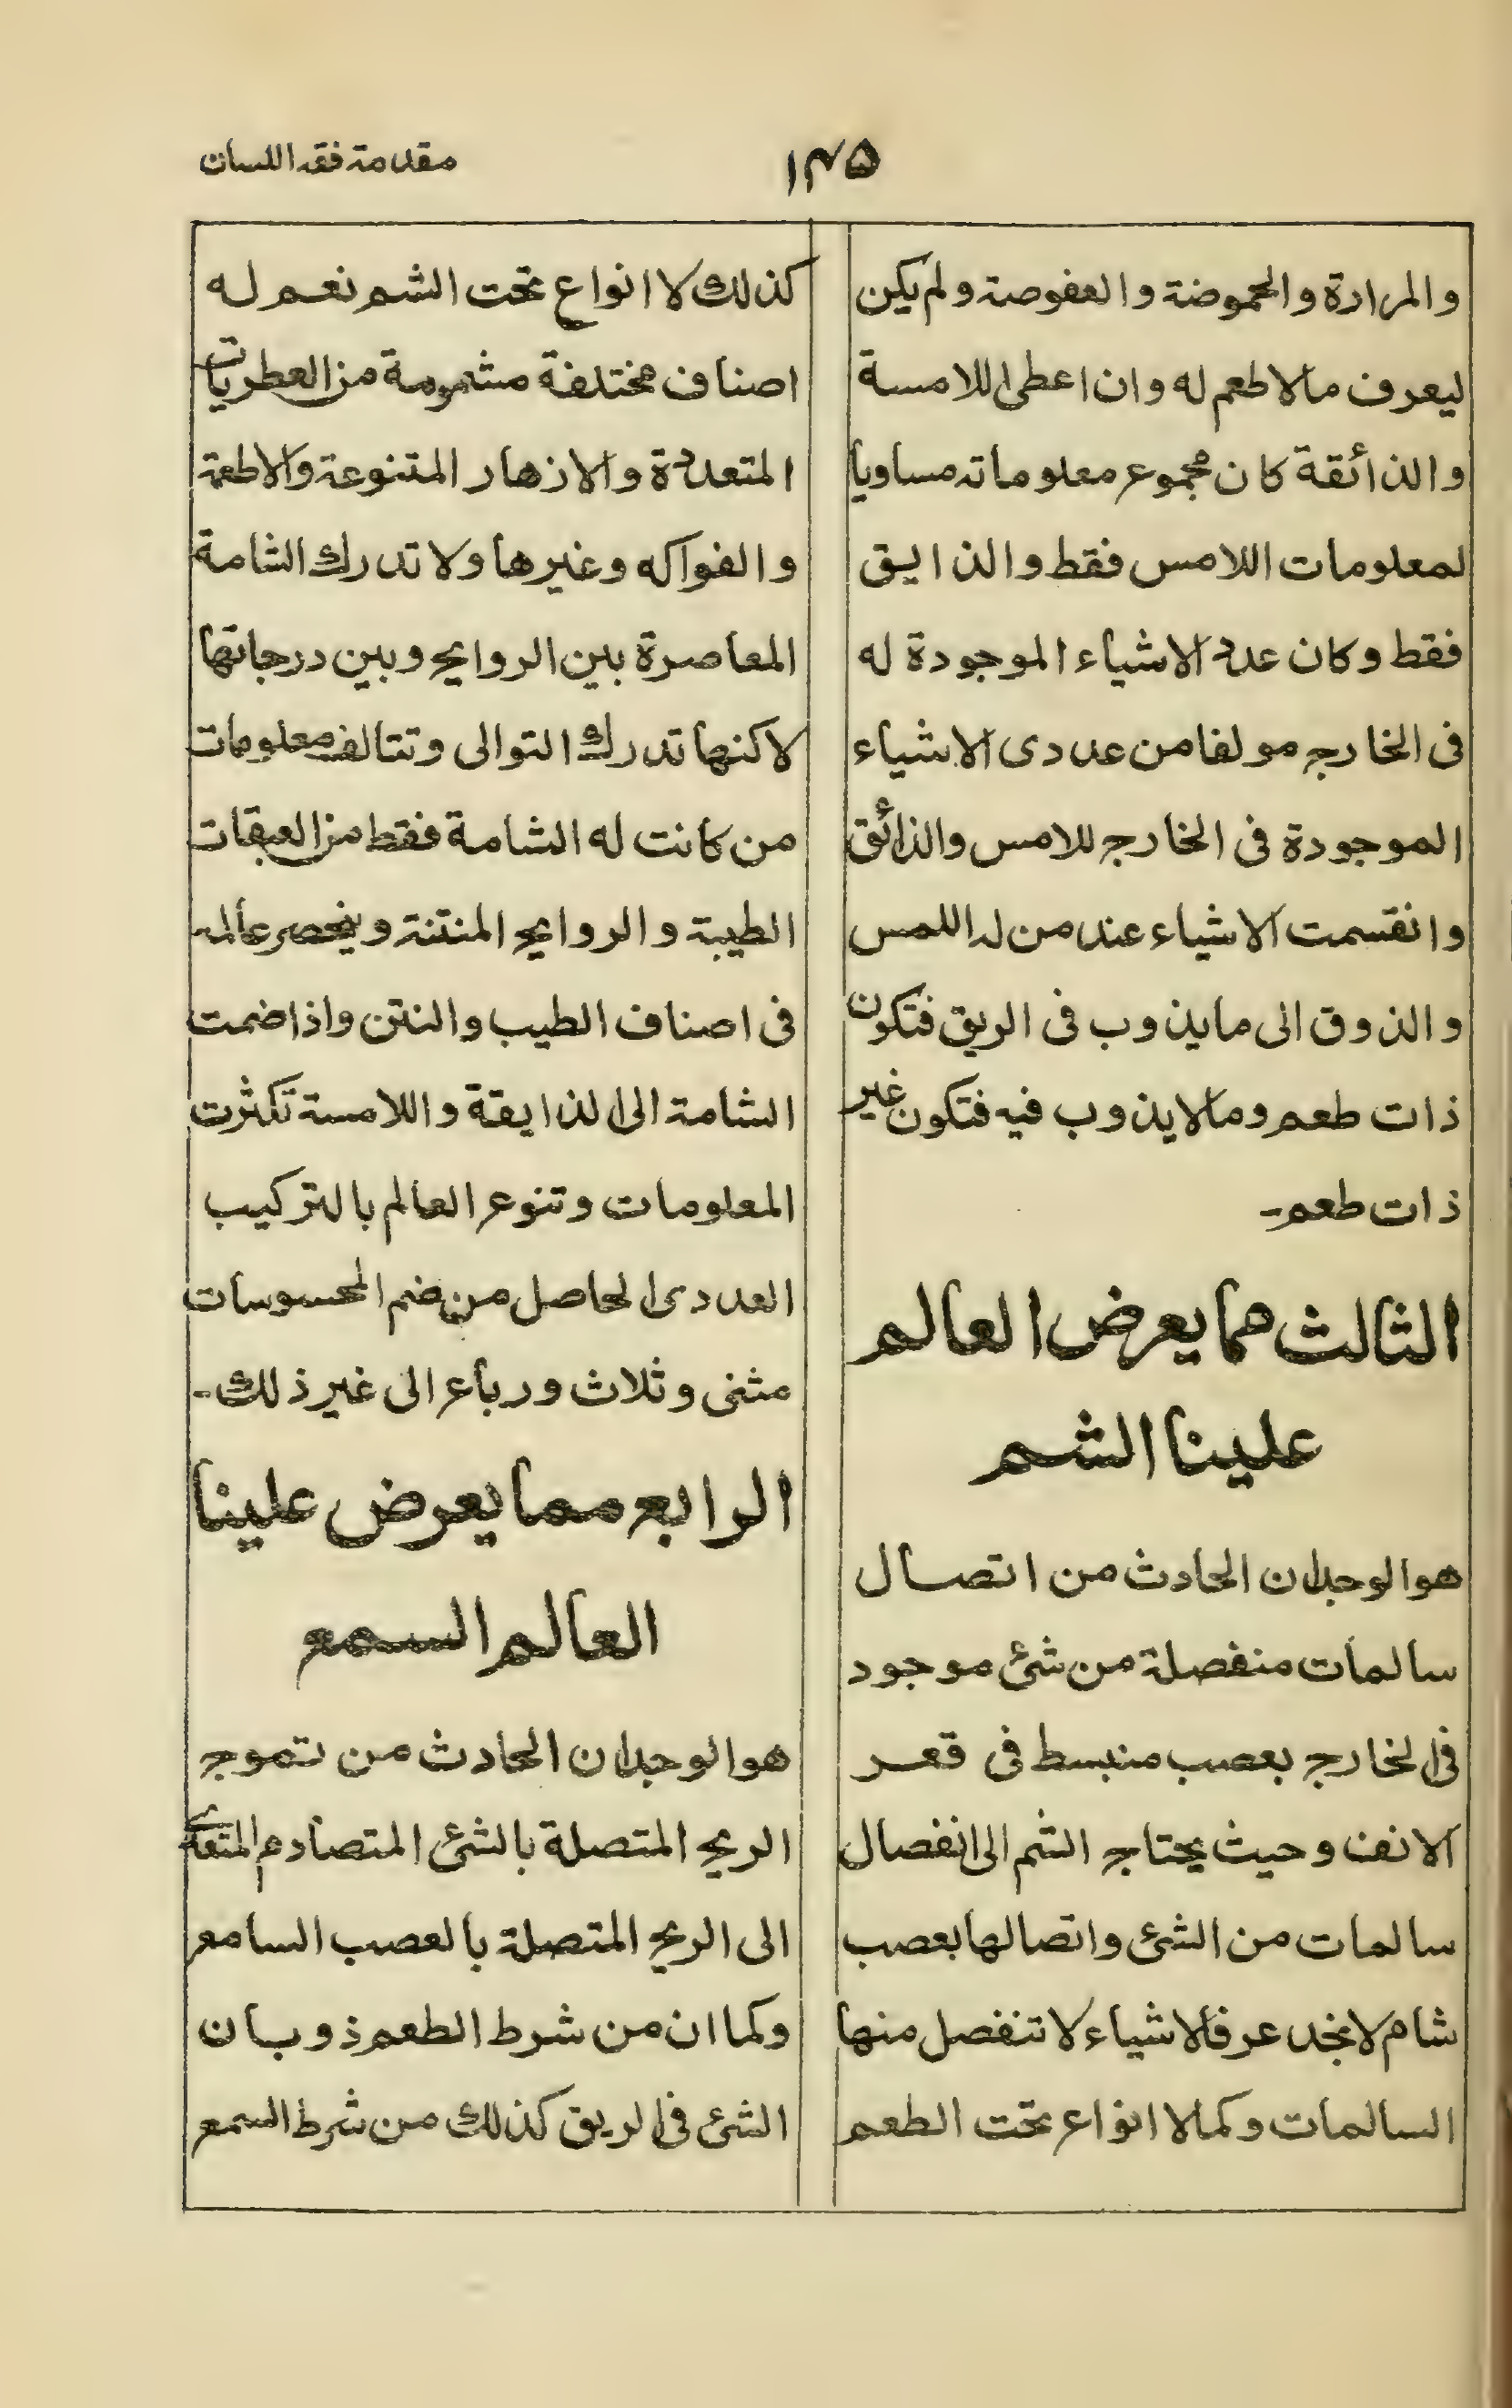 مقدمة فقه اللسان
١٣٥
والمرارة والحموضة والعفوصة ولم يكن
ليعرف مالاطعم له وان اعطى اللامسة
والذائقة كان مجموع معلوماته مساويا
لمعلومات اللامس فقط والذايق
فقط وكان عدد الاشياء الموجودة له
فى الخارج مولفا من عددى الاشياء
الموجودة فى الخارج للامس والذائق
وانقسمت الاشياء عند من له اللمس
والذوق الى مايذوب فى الريق فتكون
ذات طعم ومالايذوب فيه فتكون غير
ذات طعم۔
الثالث مما يعرض العالم
علينا الشم
هو الوجدان الحادث من اتصال
سالمات منفصلة من شئ موجود
فى الخارج بعصب منبسط فى قعر
الانف وحيث يحتاج الشم الى انفصال
سالمات من الشئ واتصالها بعصب
شام لا نجد عرفا لاشياء لا تنفصل منها
السالمات وكما لا انواع تحت الطعم
كذلك لا انواع تحت الشم نعم له
اصناف مختلفة مشمومة من العطريات
المتعددة والازهار المتنوعة والاطعمة
والفواكه وغيرها ولا تدرك الشامة
المعاصرة بين الروايح وبين درجاتها
لاكنها تدرك التوالى وتتالف معلومات
من كانت له الشامة فقط من العبقات
الطيبة والروايح المنتنة وينحصر عالمه
فى اصناف الطيب والنتن واذا ضمت
الشامة الى الذايقة واللامسة تكثرت
المعلومات وتنوع العالم بالتركيب
العددى الحاصل من ضم المحسوسات
مثنى وثلاث ورباع الى غير ذلك۔
الرابع مما يعرض علينا
العالم السمع
هو الوجدان الحادث من تموج
الريح المتصلة بالشئ المتصادم المتعدى
الى الريح المتصلة بالعصب السامع
وكما ان من شرط الطعم ذوبان
الشئ فى الريق كذلك من شرط السمع